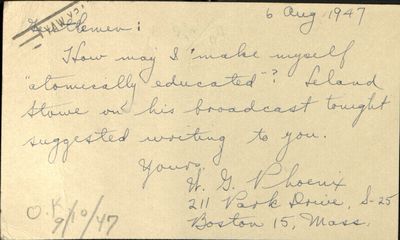 6 Aug 1947
Gentlemen:
How may I "make myself
"atomically educated"? Leland
Stowe on his broadcast tonight
suggested writing to you.
Yours,
W. G. Phoenix
211 Park Drive, S-25
Boston 15, Mass.
O.K.
9/10/47